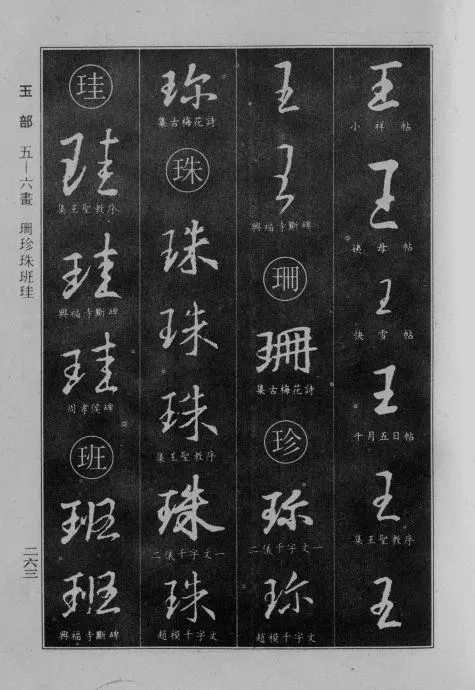 王
小祥帖
王
姨母帖
王
快雪帖
王
千月五日帖
王
集王聖教序
王
王
王
興福寺斷碑
珊
珊
集古梅花詩
珍
珍
二儀千字文一
珍
趙模千字文
珍
集古梅花詩
珠
珠
珠
珠
集王聖教序
珠
二儀千字文一
珠
趙模千字文
珪
珪
集王聖教序
珪
興福寺斷碑
珪
周孝侯碑
班
班
班
興福寺斷碑
玉部 五—六畫 珊珍珠班珪
二六三